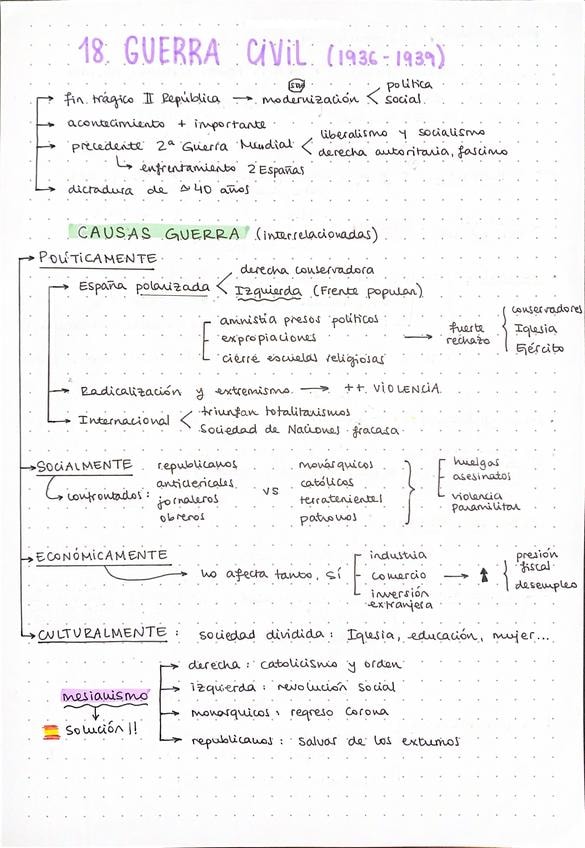 18. GUERRA CIVIL (1936-1939)
fin trágico II República → modernización < política
social
acontecimiento + importante
precedente 2ª Guerra Mundial < liberalismo y socialismo
derecha autoritaria, fascimo
↳ enfrentamiento 2 Españas
dictadura de ≈ 40 años
CAUSAS GUERRA (interrelacionadas)
POLÍTICAMENTE
España polarizada < derecha conservadora
Izquierda (Frente popular)
amnistia presos políticos
expropiaciones
cierre escuelas religiosas
→ fuerte
rechazo
conservadores
Iglesia
Ejército
Radicalización y extremismo → ++ VIOLENCIA
Internacional < triunfan totalitarismos
Sociedad de Naciones fracasa
SOCIALMENTE
↳ confrontados:
republicanos
anticlericales
jornaleros
obreros
vs
monárquicos
católicos
terratenientes
patronos
huelgas
asesinatos
violencia
paramilitar
ECONÓMICAMENTE
→ no afecta tanto, sí
industria
comercio
inversión
extranjera
→ ↑
presión
fiscal
desempleo
CULTURALMENTE : sociedad dividida: Iglesia, educación, mujer...
mesianismo
Solución!!
derecha: catolicismo y orden
izquierda: revolución social
monarquicos: regreso Corona
republicanos: salvar de los extremos